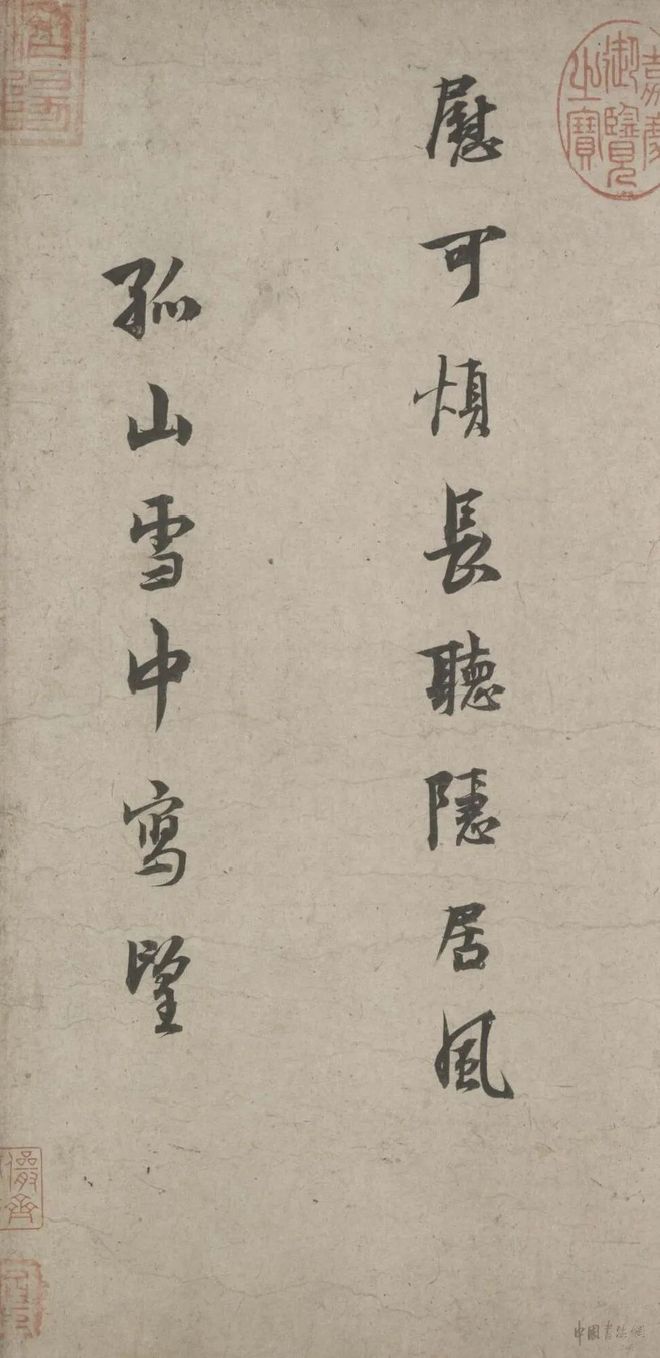 嘉慶御覽之寶
慰可煩長聽隱居風
孤山雪中寫望
儼齋
中國書法網